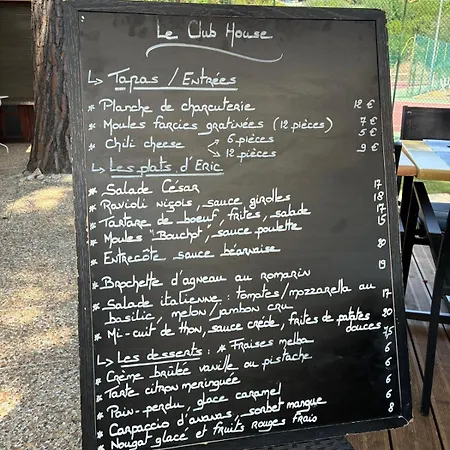 Le Club House
↳ Tapas / Entrées
* Planche de charcuterie 12 €
* Moules farcies gratinées (12 pièces) 7 €
* Chili cheese → 6 pièces 5 €
→ 12 pièces 9 €
↳ Les plats d'Eric
* Salade César 17
* Ravioli niçois, sauce girolles 18
* Tartare de boeuf, frites, salade 17
* Moules "Bouchot", sauce poulette 15
* Entrecôte sauce béarnaise 20
* Brochette d'agneau au romarin 19
* Salade italienne : tomates/mozzarella au
basilic, melon/jambon cru 17
* Mi-cuit de thon, sauce créole, frites de patates 20
douces
↳ Les desserts : * Fraises melba 7,5
* Crème brûlée vanille ou pistache 6
* Tarte citron meringuée 6
* Pain-perdu, glace caramel 6
* Carpaccio d'ananas, sorbet mangue 6
* Nougat glacé et fruits rouges frais 8